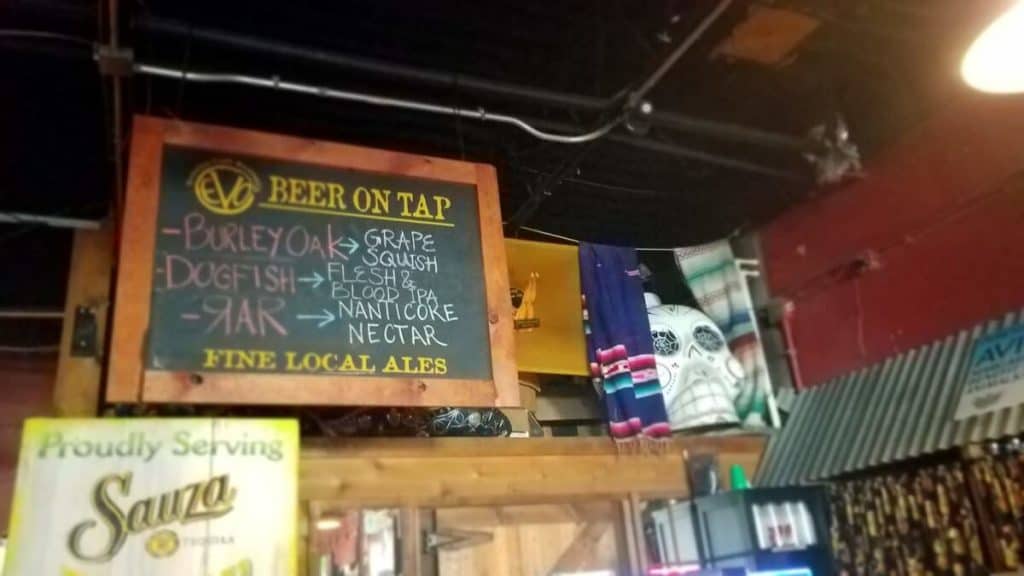 EVO BEER ON TAP
-BURLEY Oak→ GRAPE
SQUISH
-DOGFISH→ FLESH &
BLOOD IPA
-RAR → NANTICORE
NECTAR
FINE LOCAL ALES
Proudly Serving
Sauza
TEQUILA